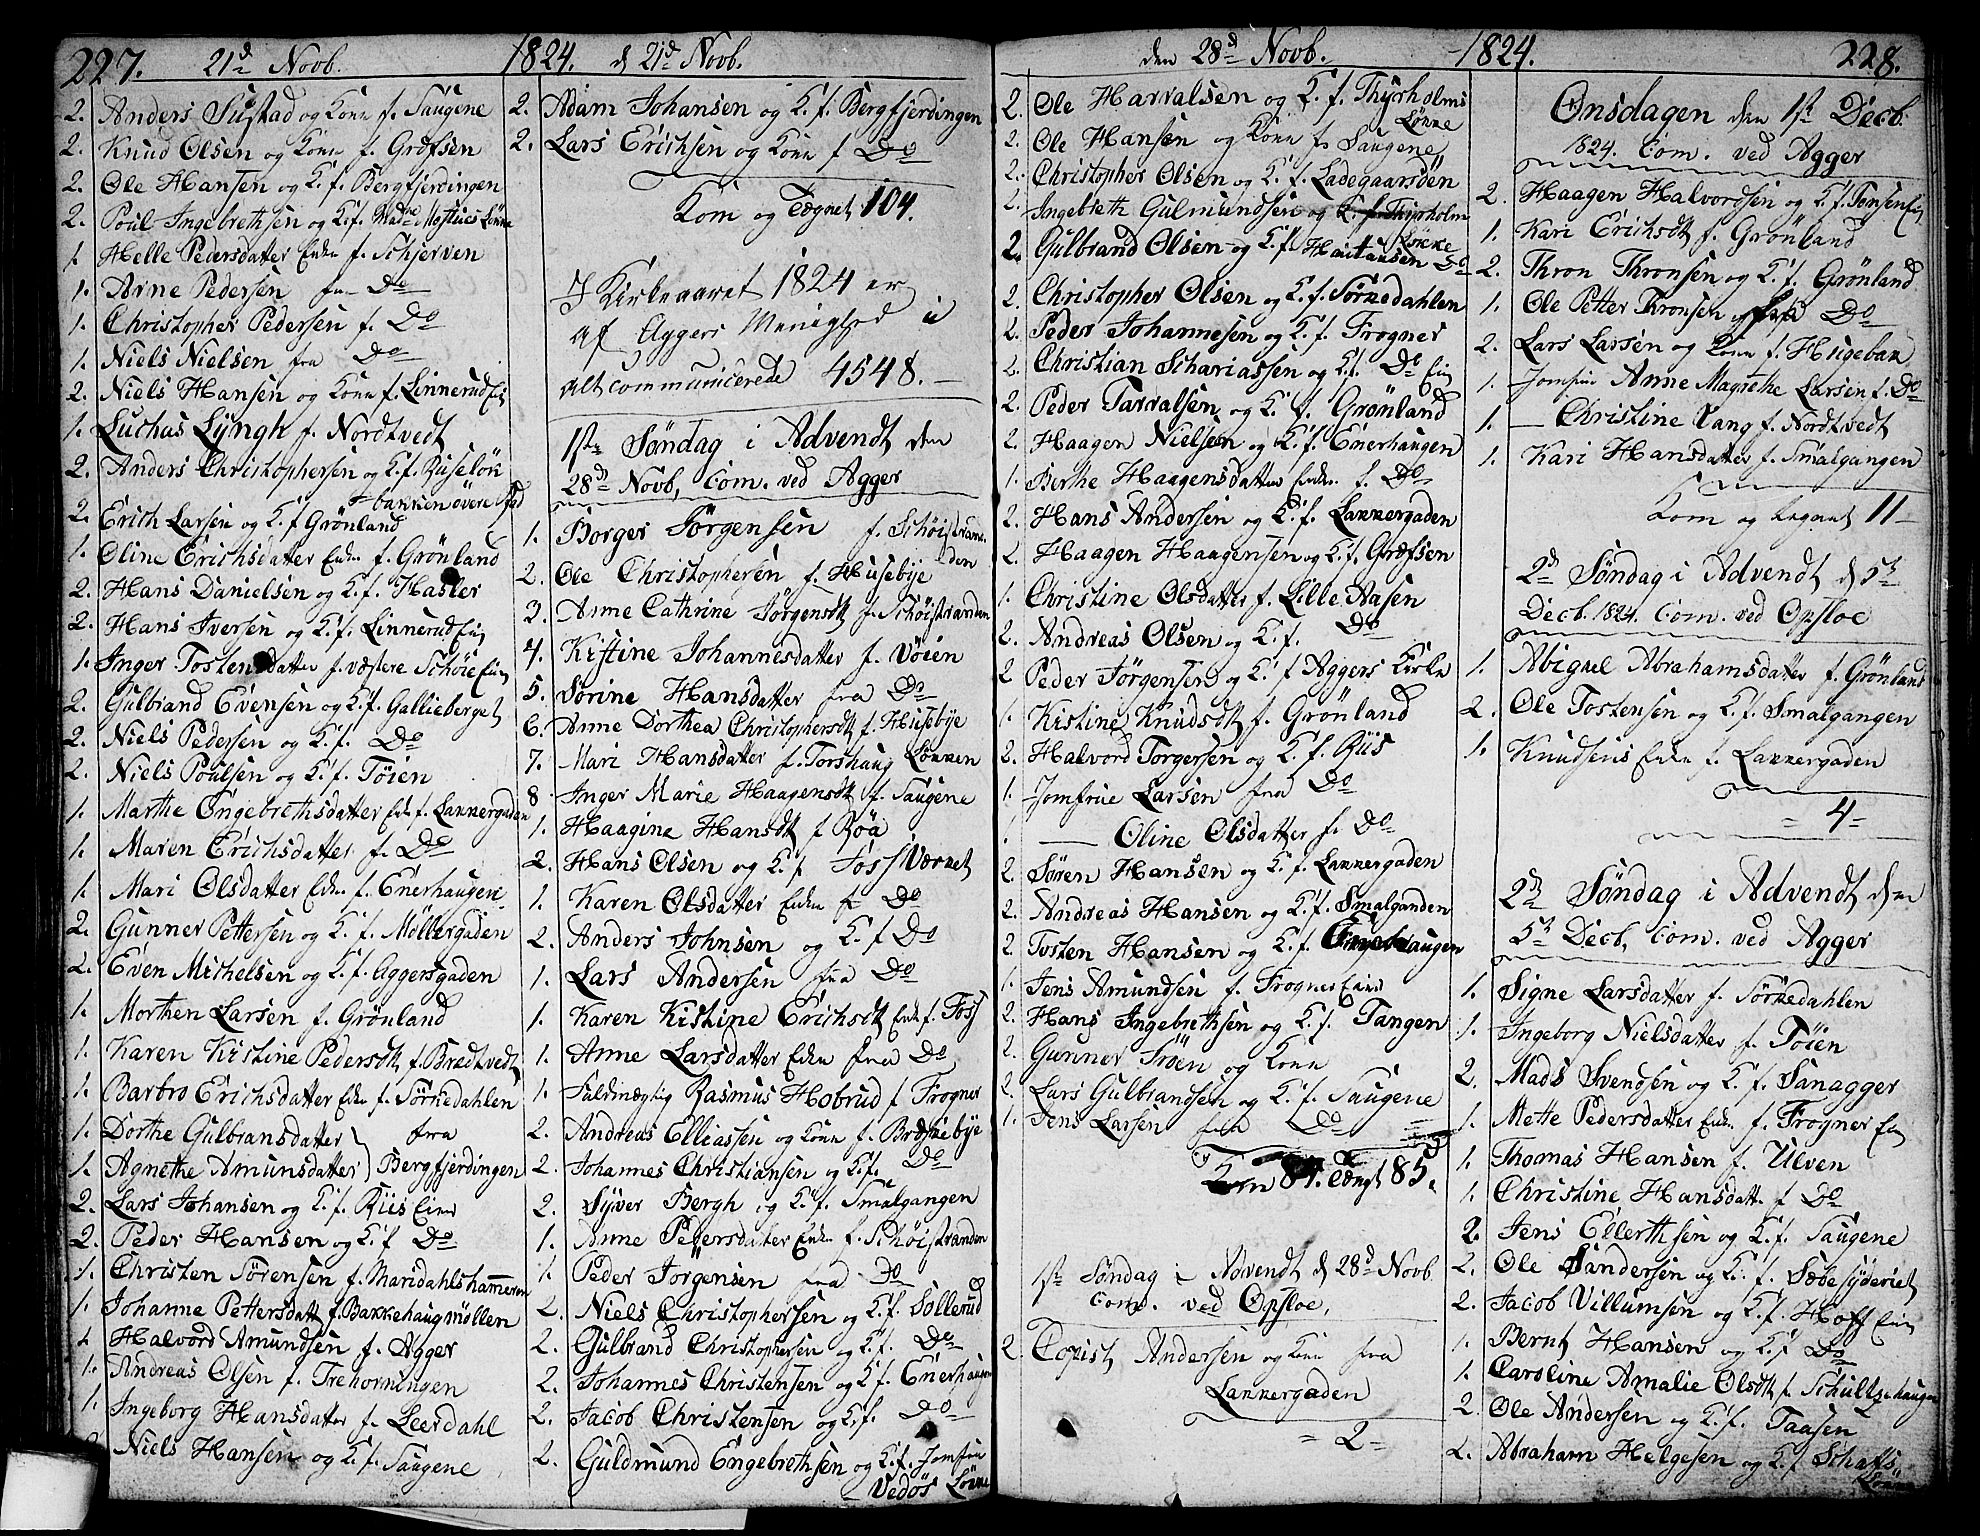 227. 21d Novb. 1824. d 21d Novb.
2. Anders Sustad og Kone f. Saugene
2. Knud Olsen og Kone f. Grefsen
2. Ole Hansen og K. f. Bergfjerdingen
2. Poul Ingebrethsen og K. f. Madme
1. Helle Pedersdatter Enke f. Schjerven
1. Arne Pedersen fra Do
1. Christopher Pedersen f. Do
1. Niels Nielsen fra Do
2. Niels Hansen og Kone f. Linnerud Eie
1. Luchas Lyngh f. Nordtvedt
2. Anders Christophersen og K. f. Ruseløk
banken øvere
2. Erich Larsen og K. f Grønland
1. Oline Erichsdatter Enke f. Grønland
2. Hans Danielsen og K. f. Hasler
2. Hans Iversen og K. f. Linnerud Eie
1. Inger Tostensdatter f. væstere Schøie Eie
2. Gulbrand Evensen og K. f. Gallieberget
2. Niels Pedersen og K. f. Do
2. Niels Poulsen og K. f. Tøien
1. Marthe Engebrethsdatter Enk. f. Lakkergaden
1. Maren Erichsdatter f. Do
1. Mari Olsdatter Enke f. Enerhaugen
2. Gunner Pettersen og K. f. Møllergaden
2. Even Michelsen og K. f. Aggersgaden
1. Morthen Larsen f. Grønland
1. Karen Kristine Pedersdt f. Bredtvedt
1. Barbro Erichsdatter Enke f. Sørkedahlen
1. Dorthe Gulbransdatter fra
1. Agnethe Amunsdatter Bergfjerdingen
2. Lars Johansen og K. f. Riis Eier
2. Peder Hansen og K. f Do
1. Christen Sørensen f. Maridahlshammeren
1. Johanne Pettersdatt f. Bakkehaugmøllen
1 Halvord Amundsen f. Agger
1. Andreas Olsen f. Trehorningen
1. Ingeborg Hansdatter f. Leerdahl
2 Niels Hansen og K. f. Saugene
2. Adam Johansen og K. f. Bergfjerdingen
2. Lars Erichsen og Kone f Do
Kom og Tegnet 104.
I Kirkeaaret 1824 er
af Aggers Menighed i
alt communicerede 4548.
1ste Søndag i Advendt den
28d Novb, Com. ved Agger
1. Borger Jørgensen f. Schøistran-
den
2. Ole Christophersen f. Husebye
3. Anne Cathrine Jørgensdt f. Schøistranden
4. Kristine Johannesdatter f. Vøien
5. Sorine Hansdatter fra Do
6. Anne Dorthea Christophersdt f. Husebye
7. Mari Hansdatter f. Torshaug Løkken
8 Inger Marie Haagensdt f. Saugene
1. Haagine Hansdt f Røa
2. Hans Olsen og K. f Foss Værket
1. Karen Olsdatter Enke f Do
2. Anders Johnsen og K. f Do
1. Lars Andersen fra Do
1. Karen Kristine Erichsdt Enk. f. Foss
1. Anne Larsdatter Enke fra Do
1. Fuldmægtig Rasmus Hobrud f Frogner
2. Andreas Elliassen og Kone f. Brøskebye
2. Johannes Christiansen og K. f. Do
2. Syver Bergh og K. f. Smalgangen
1. Anne Pedersdatter Enke f. Schøistranden
1. Peder Jorgensen fra Do
2. Niels Christophersen og K. f. Sollerud
2. Gulbrand Christophersen og K. f. Do
2. Johannes Christensen og K. f. Enerhaugen
2. Jacob Christensen og K. f. Do
2. Guldmund Engebrethsen og K. f. Jomfrue
Vedøs Løkke
den 28d Novb. 1824. 228.
2. Ole Harvalsen og K. f. Thyrholms
Løkke
2. Ole Hansen og Kone f. Saugene
2. Christopher Olsen og K. f. Ladegaarsøen
2. Ingebreth Gulmundsen og K. f. Thyrholm
Løkke
2. Gulbrand Olsen og K. f. Do
2. Christopher Olsen og K. f. Sørkedahlen
2. Peder Johannesen og K. f. Frogner
2. Christian Schariassen og K. f. Do Eie
2. Peder Tarvalsen og K. f. Grønland
2. Haagen Nielsen og K. f. Enerhaugen
1. Berthe Haagensdatter Enke f. Do
2. Hans Andersen og K. f. Lakkergaden
2. Haagen Haagensen og K. f. Græfsen
1. Christine Olsdatter f. Lille Aasen
2. Andreas Olsen og K. f. Do
2 Peder Jørgensen og K. f Aggers Kirke
1. Kristine Knudsdt f. Grønland
2. Halvord Torgersen og K. f. Riis
1. Jomfrue Larsen fra Do
1. — Oline Olsdatter f. Do
2. Søren Hansen og K. f. Lakkergaden
2. Andreas Hansen og K. f. Smalganden
2. Tosten Hansen og K. f. Enerhaugen
1. Jens Amundsen f. Frogner Eier
2. Hans Ingebrethsen og K. f. Tangen
2. Gunner Moen og Kone
2. Lars Gulbrandsen og K. f. Saugene
1. Jens Larsen fra Do
Kom 87. Tegnet 85.
1ste Søndag i Advendt d 28d Novb
Com. ved Opsloe,
2 Copist Andersen og Kone fra
Lakkergaden
= 2 =
Onsdagen den 1ste Decb.
1824. Com. ved Agger
2. Haagen Halvordsen og K. f. Tonsen Eie
1. Kari Erichsdt f. Grønland
2. Thron Thronsen og K. f. Grønland
1. Ole Petter Thronsen fra Do
2. Lars Larsen og Kone f. Hugebak
1. Jomfrue Anne Magrethe Larsen f. Do
1. — Christine Lang f. Nordtvedt
1. Kari Hansdatter f. Smalgangen
Kom og tegnet 11
2d Søndag i Advendt d 5t
Decb. 1824. Com. ved Opsloe
1. Abiguel Abrahamsdatter f. Grønland
2. Ole Tostensen og K. f. Smalgangen
1. Knudsens Enke f. Lakkergaden
= 4 =
2d Søndag i Advendt den
5t Decb, Com. ved Agger
1. Signe Larsdatter f. Sørkedahlen
1. Ingeborg Nielsdatter f. Tøien
2. Mads Svendsen og K. f. Sanagger
1. Mette Pedersdatter Enke f. Frogner Eie
1. Thomas Hansen f. Ulven
1. Christine Hansdatt f Do
2. Jens Ellerthsen og K. f. Saugene
2. Ole Sandersen og K. f. Sæbesyderiet
2. Jacob Villumsen og K. f. Hoff Eie
1. Bernt Hansen og K. f Do
1. Caroline Amalie Olsdt f. Schultzehaugen
2. Ole Andersen og K. f. Taasen
2. Abraham Helgesen og K. f Schafts
Løkke